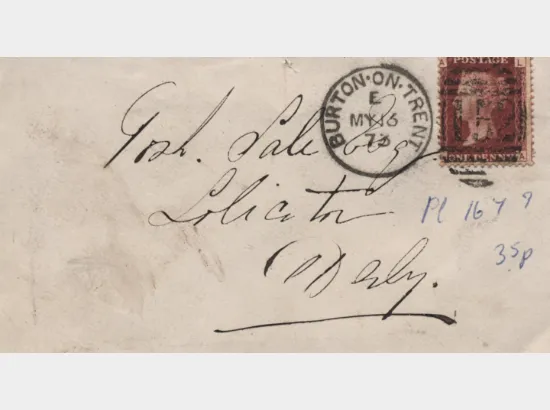 A POSTAGE L
BURTON·ON·TRENT
E
MY 16
73
ONE PENNY A
Josh. Sale Esq
Solicitor
Derby.
Pl 167 ?
35p